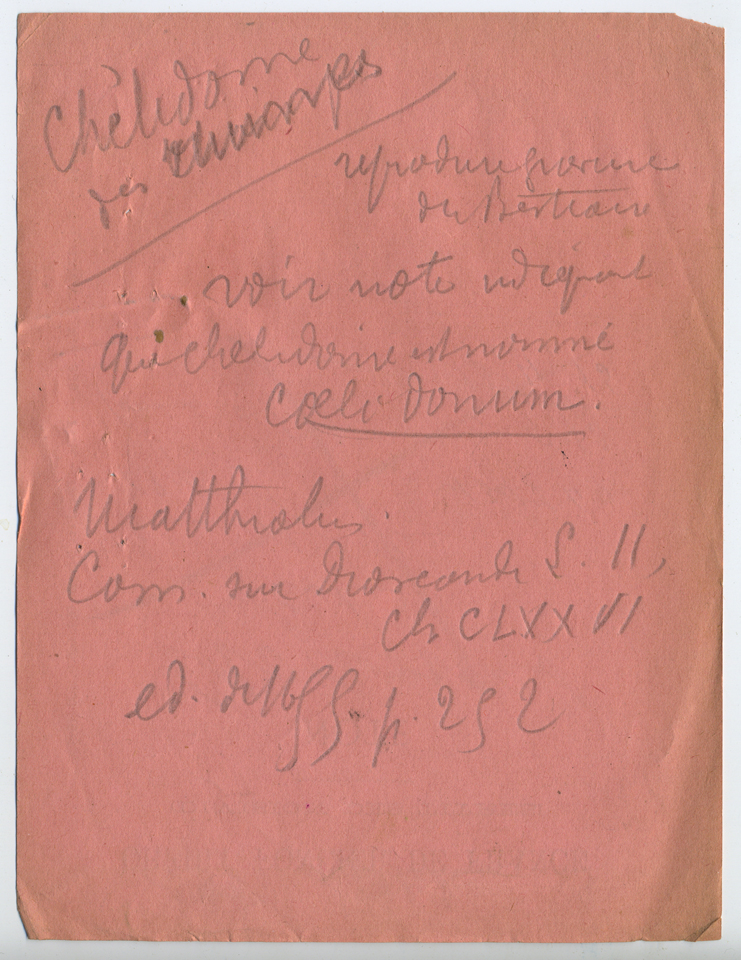 Chélidoine
des champs
reproduire gravure
du Bestiaire
voir note indiquant
que chelidoine est nommé
Cœli donum.
Matthiolus.
Com. sur Dioscoride L. II,
Ch CLXXVI
ed. de 1655. p. 252